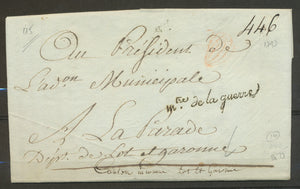 446
Au Président de
L'adon Municipale
mtre de la guerre
A La Parade
Dépt. de Lot et garonne
Lot et Garonne